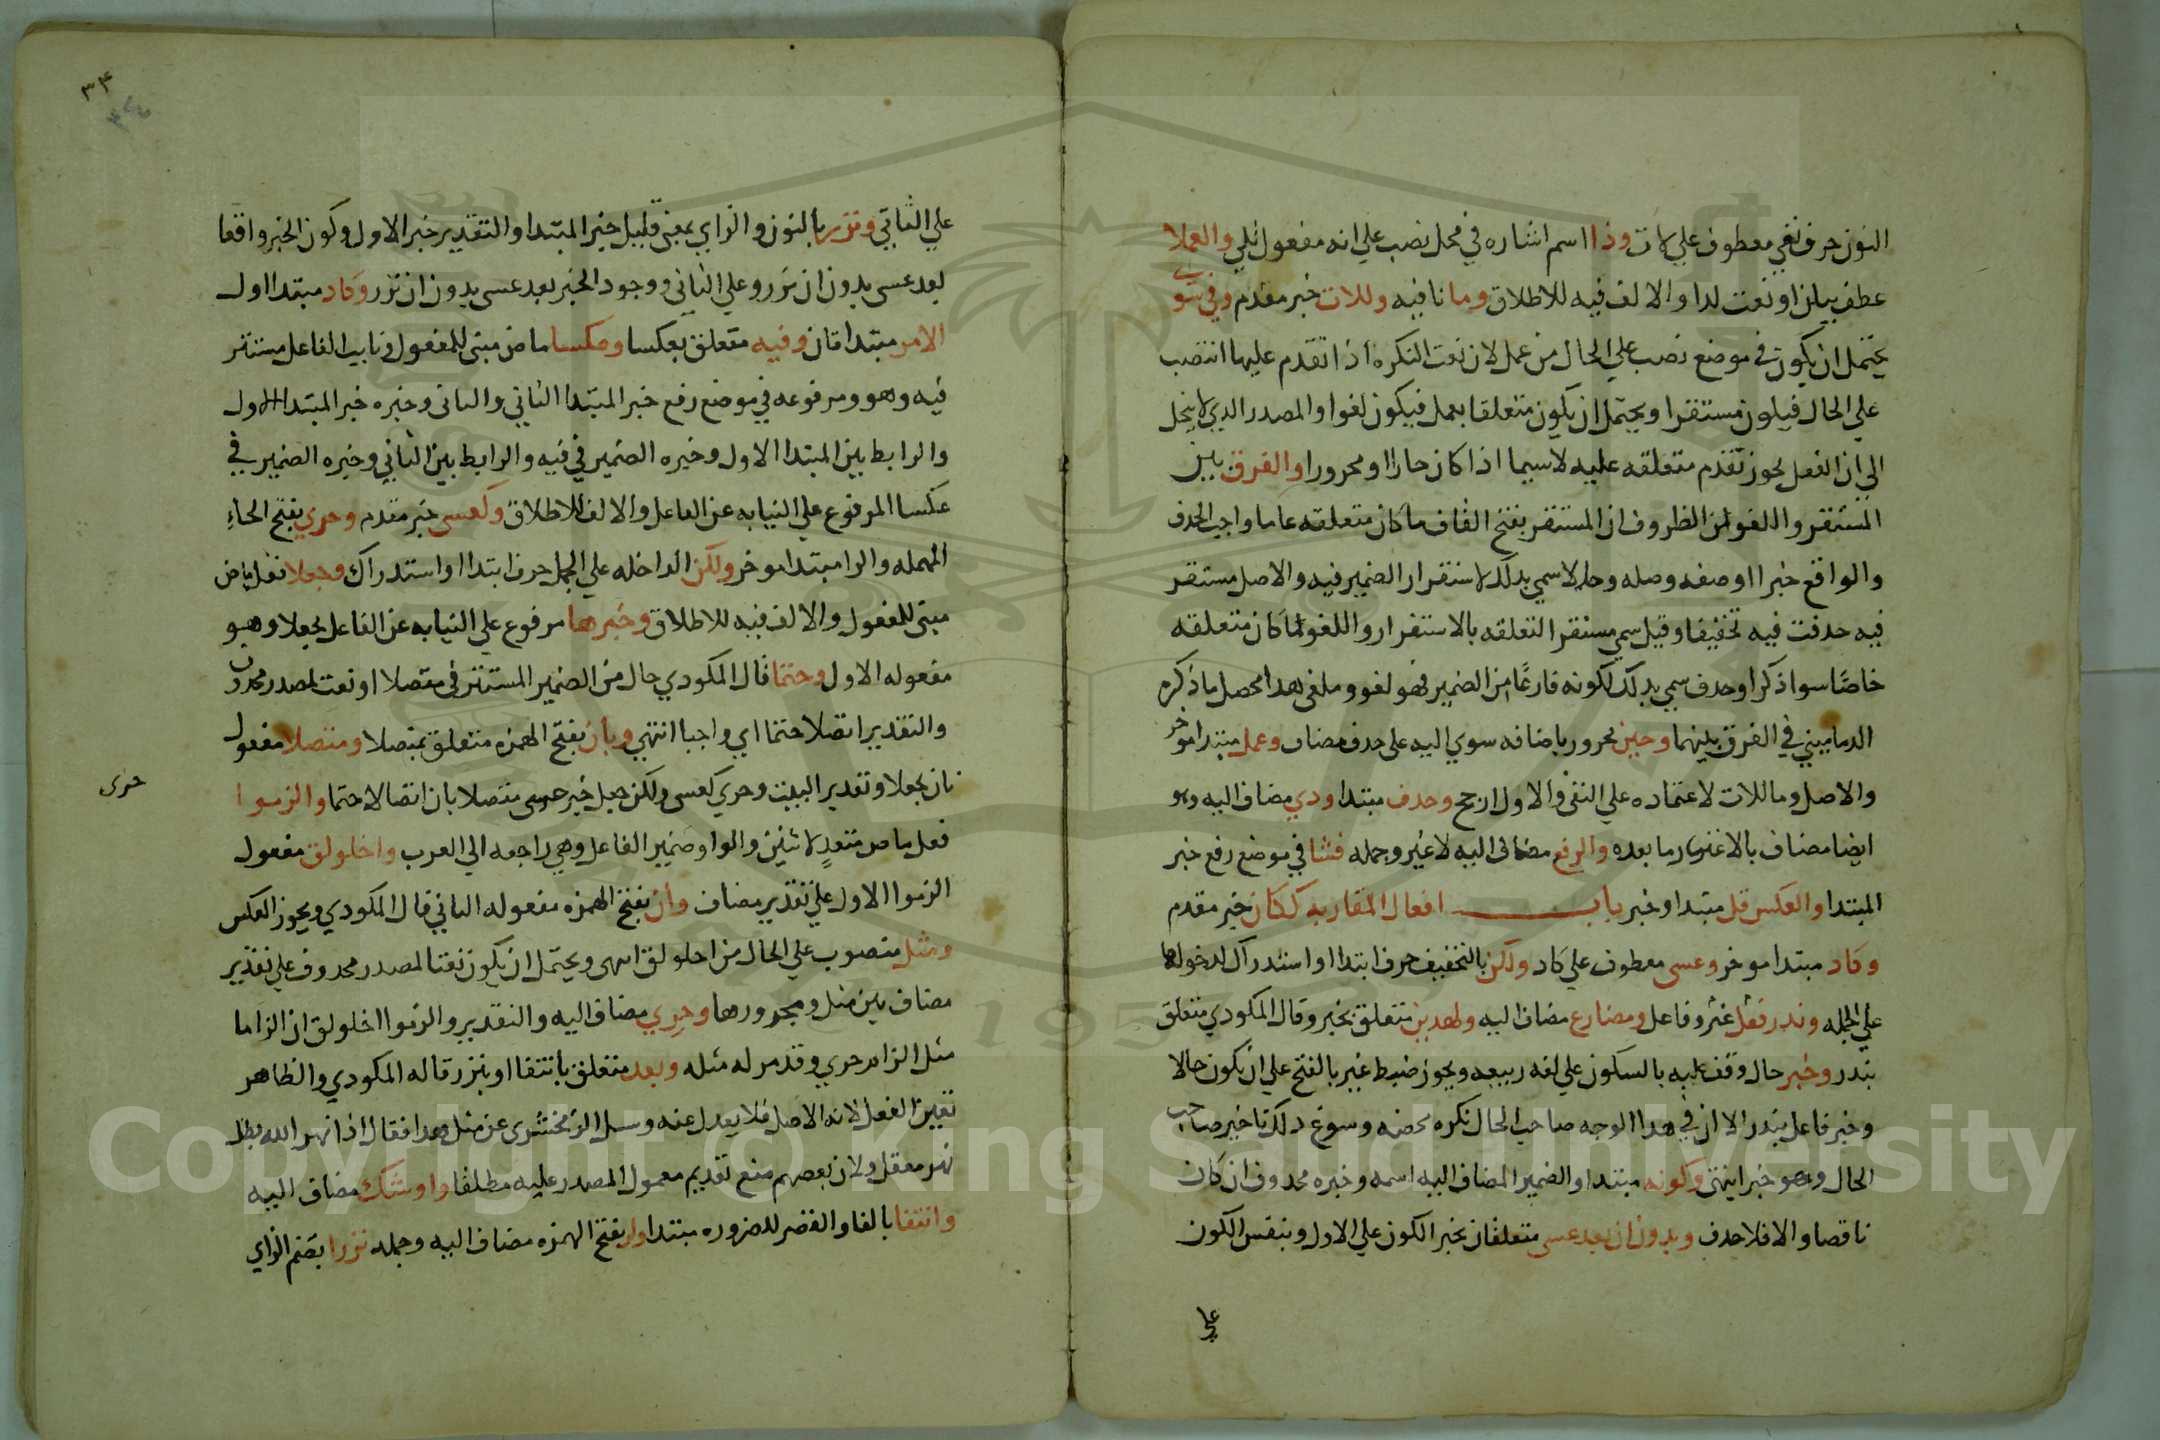 النون حرف نفي معطوف علي لات وذا اسم اشاره في محل نصب علي انه مفعول تلي والعلا
عطف بيان او نعت لذا والالف فيه للاطلاق وما نافيه وللات خبر مقدم وفي سوي
يحتمل ان يكون في موضع نصب علي الحال من عمل لان نعت النكره اذا تقدم عليها انتصب
علي الحال فيكون مستقرا ويحتمل ان يكون متعلقا بعمل فيكون لغوا والمصدر الذي لا ينحل
الي ان الفعل يجوز تقدم متعلقه عليه لاسيما اذا كان جارا او مجرورا والفرق بين
المستقر واللغو من الظروف ان المستقر بفتح القاف ما كان متعلقه عاما واجب الحذف
والواقع خبرا او صفه وصله وحالا سمي بذلك لاستقرار الضمير فيه والاصل مستقر
فيه حذفت فيه تخفيفا وقيل سمي مستقرا لتعلقه بالاستقرار واللغو ما كان متعلقه
خاصا سوا ذكر او حذف سمي بذلك لكونه فارغا من الضمير فهو لغو وملغي هذا محصل ما ذكره
الدماميني في الفرق بينهما وحين مجرور باضافه سوي اليه علي حذف مضاف وعمل مبتدا موخر
والاصل وما للات لاعتماده علي النفي والاول ارجح وحذف مبتدا وذي مضاف اليه وهو
ايضا مضاف بالاعتبار ما بعده والرفع مضاف اليه لا غير وجمله فشا في موضع رفع خبر
المبتدا والعكس قل مبتدا وخبر باب افعال المقاربه ككان خبر مقدم
وكاد مبتدا موخر وعسى معطوف علي كاد ولكن بالتخفيف حرف ابتدا او استدراك لدخولها
علي الجمله وندر فعل غير فاعل ومضارع مضاف اليه ولهذين متعلق بخبر وقال المكودي متعلق
بندر وخبر حال وقف عليه بالسكون علي لغه ربيعه ويجوز ضبط غير بالفتح علي ان يكون حالا
وخبر فاعل بندر الا ان في هذا الوجه صاحب الحال نكره محضه وسوغ ذلك تاخير صاحب
الحال وهو خبر انتهى وكونه مبتدا والضمير المضاف اليه اسمه وخبره محذوف ان كان
ناقصا والا فلا حذف وبدون ان بعد عسى متعلقان بخبر الكون علي الاول وبنفس الكون
علي
٣٤
علي الثاني ونزر بالنون والزاي بمعني قليل خبر المبتدا والتقدير خبر الاول وكون الخبر واقعا
بعد عسى بدون ان نزر وعلي الثاني ووجود الخبر بعد عسى بدون ان نزر وكاد مبتدا اول
الامر مبتدا ثان وفيه متعلق بعكسا وعكسا ماض مبني للمفعول ونايب الفاعل مستتر
فيه وهو ومرفوعه في موضع رفع خبر المبتدا الثاني والثاني وخبره خبر المبتدا الاول
والرابط بين المبتدا الاول وخبره الضمير في فيه والرابط بين الثاني وخبره الضمير في
عكسا المرفوع علي النيابه عن الفاعل والالف للاطلاق وكعسى خبر مقدم وحري بفتح الحاء
المهمله والرا مبتدا موخر ولكن الداخله علي الجمل حرف ابتدا او استدراك وجعلا فعل ماض
مبني للمفعول والالف فيه للاطلاق وخبرها مرفوع علي النيابه عن الفاعل بجعلا وهو
مفعوله الاول وحتما قال المكودي حال من الضمير المستتر في متصلا او نعت لمصدر محذوف
والتقدير اتصلا حتما اي واجبا انتهي وبان بفتح الهمزه متعلق بمتصلا ومتصلا مفعول
ثان بجعلا وتقدير البيت وحري كعسى ولكن جعل خبر حري متصلا بان اتصالا حتما والزموا
حرى
فعل ماض متعد لاثنين والواو ضمير الفاعل وهي راجعه الي العرب واخلولق مفعول
الزموا الاول علي تقدير مضاف وأن بفتح الهمزه مفعوله الثاني قال المكودي ويجوز العكس
ومثل منصوب علي الحال من اخلولق انتهى ويحتمل ان يكون نعتا لمصدر محذوف علي تقدير
مضاف بين مثل ومجرورها وحري مضاف اليه والتقدير والزموا اخلولق ان الزاما
مثل الزام حري وقد مر له مثله وبعد متعلق بانتفا او بنزر قاله المكودي والظاهر
تعين الفعل لانه الاصل فلا يعدل عنه وسئل الزمخشري عن مثل هذا فقال اذا نهر الله بطل
نهر معقل ولان بعضهم منع تقديم معمول المصدر عليه مطلقا واوشك مضاف اليه
وانتفا بالفا والقصر للضروره مبتدا وان بفتح الهمزه مضاف اليه وجمله نزرا بضم الزاي
Copyright © King Saud University
1957